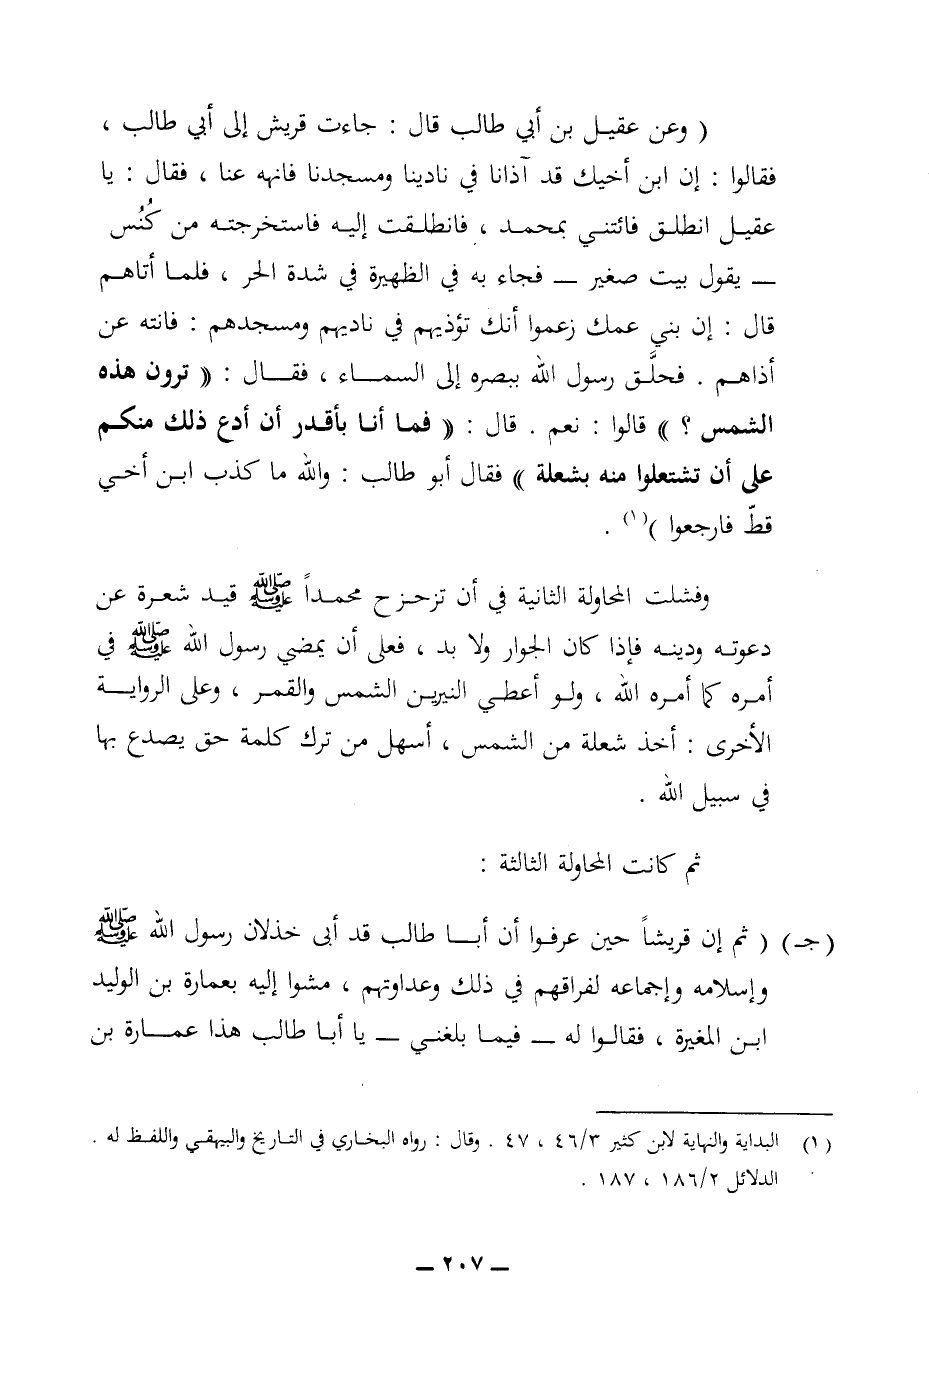 ( وعن عقيل بن أبي طالب قال : جاءت قريش إلى أبي طالب ،
فقالوا : إن ابن أخيك قد آذانا في نادينا ومسجدنا فانهه عنا ، فقال : يا
عقيل انطلق فائتني بمحمد ، فانطلقت إليه فاستخرجته من كُنُس
ــ يقول بيت صغير ــ فجاء به في الظهيرة في شدة الحر ، فلما أتاهم
قال : إن بني عمك زعموا أنك تؤذيهم في ناديهم ومسجدهم : فانته عن
أذاهم . فحلَّق رسول الله ببصره إلى السماء ، فقال : (( ترون هذه
الشمس ؟ )) قالوا : نعم . قال : (( فما أنا بأقدر أن أدع ذلك منكم
على أن تشتعلوا منه بشعلة )) فقال أبو طالب : والله ما كذب ابن أخي
قطّ فارجعوا )(١) .
وفشلت المحاولة الثانية في أن تزحزح محمداً ﷺ قيد شعرة عن
دعوته ودينه فإذا كان الجوار ولا بد ، فعلى أن يمضي رسول الله ﷺ في
أمره كما أمره الله ، ولو أعطي النيرين الشمس والقمر ، وعلى الرواية
الأخرى : أخذ شعلة من الشمس ، أسهل من ترك كلمة حق يصدع بها
في سبيل الله .
ثم كانت المحاولة الثالثة :
(جـ) ( ثم إن قريشاً حين عرفوا أن أبا طالب قد أبى خذلان رسول الله ﷺ
وإسلامه وإجماعه لفراقهم في ذلك وعداوتهم ، مشوا إليه بعمارة بن الوليد
ابن المغيرة ، فقالوا له ــ فيما بلغني ــ يا أبا طالب هذا عمارة بن
(١) البداية والنهاية لابن كثير ٤٦/٣ ، ٤٧ . وقال : رواه البخاري في التاريخ والبيهقي واللفظ له .
الدلائل ١٨٦/٢ ، ١٨٧ .
ــ ٢٠٧ ــ